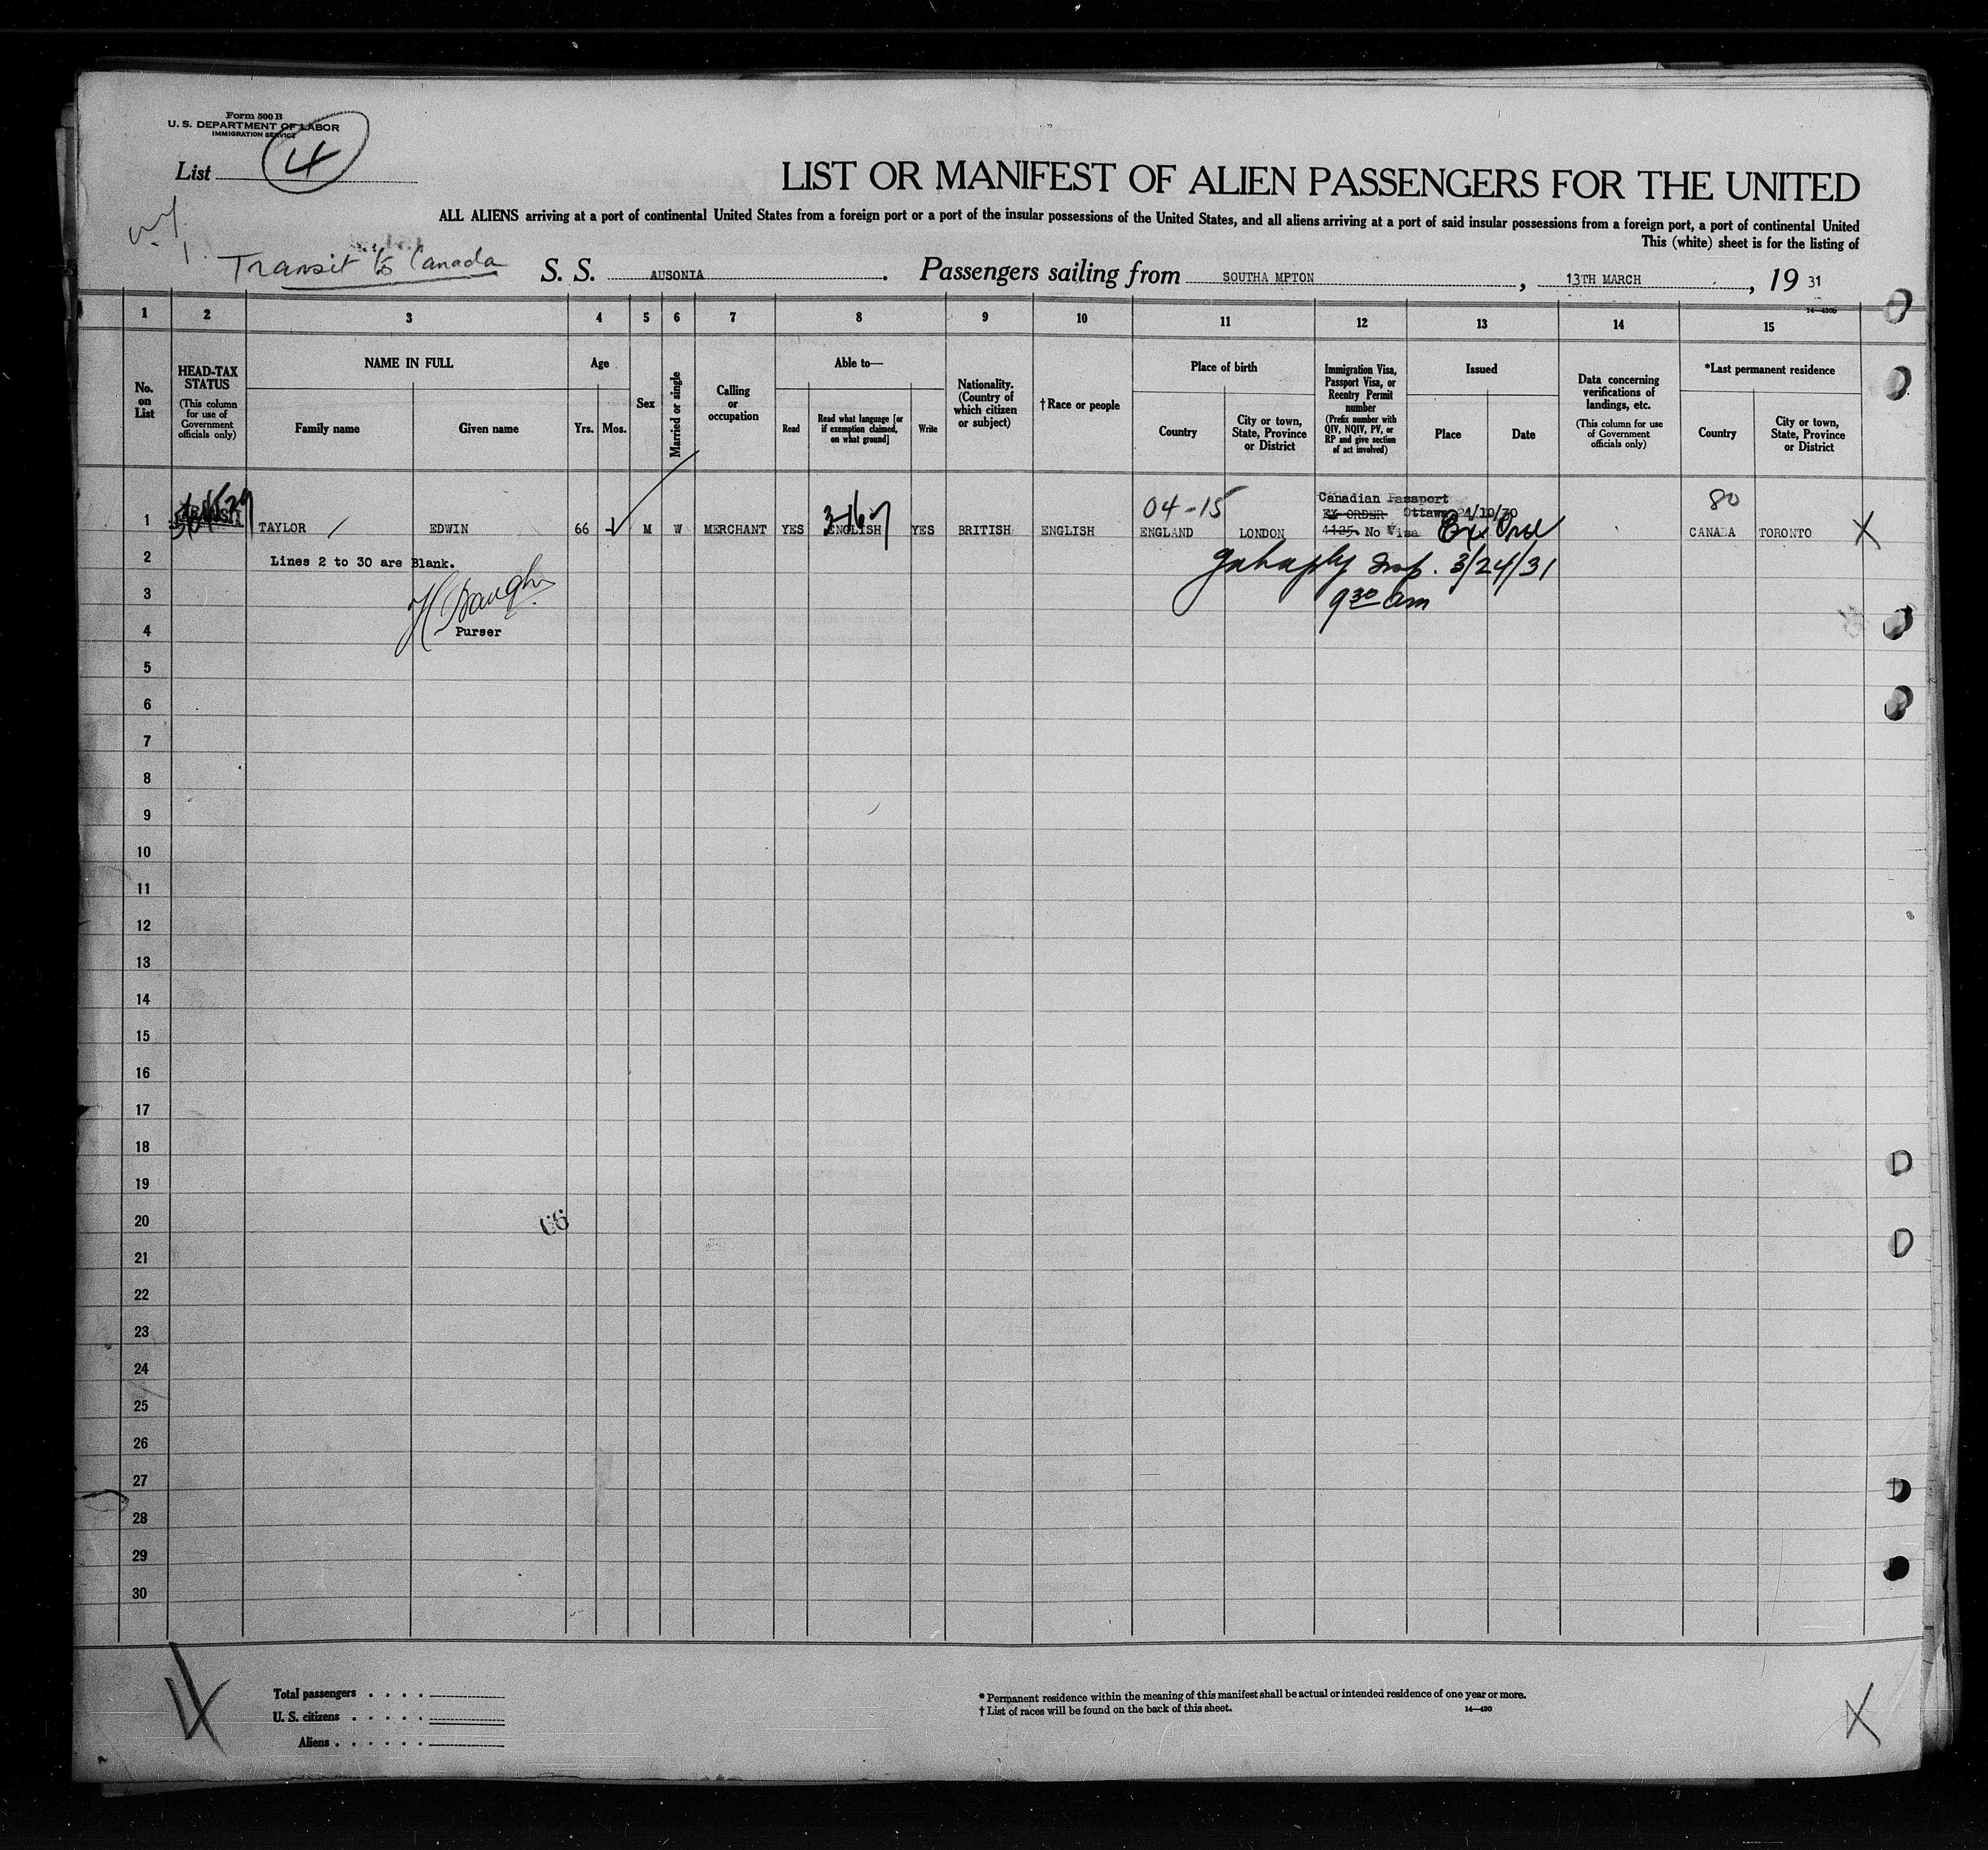 Form 500 B
U. S. DEPARTMENT OF LABOR
IMMIGRATION SERVICE
List 4
LIST OR MANIFEST OF ALIEN PASSENGERS FOR THE UNITED
ALL ALIENS arriving at a port of continental United States from a foreign port or a port of the insular possessions of the United States, and all aliens arriving at a port of said insular possessions from a foreign port, a port of continental United
This (white) sheet is for the listing of
Transit to Canada
S. S. AUSONIA. Passengers sailing from SOUTHA MPTON, 13TH MARCH, 19 31
1 2 3 4 5 6 7 8 9 10 11 12 13 14 15
No. on List
HEAD-TAX STATUS (This column for use of Government officials only)
NAME IN FULL
Family name Given name
Age
Yrs. Mos.
Sex
Married or single
Calling or occupation
Able to—
Read
Read what language [or if exemption claimed, on what ground]
Write
Nationality. (Country of which citizen or subject)
†Race or people
Place of birth
Country
City or town, State, Province or District
Immigration Visa, Passport Visa, or Reentry Permit number (Prefix number with QIV, NQIV, PV, or RP and give section of act involved)
Issued
Place Date
Data concerning verifications of landings, etc. (This column for use of Government officials only)
*Last permanent residence
Country
City or town, State, Province or District
04-15
80
Canadian Passport
EX-ORDER Ottawa 24/10/30
1 TRANSIT TAYLOR EDWIN 66 M W MERCHANT YES ENGLISH YES BRITISH ENGLISH ENGLAND LONDON 4125. No Visa CANADA TORONTO X
2 Lines 2 to 30 are Blank. 3/24/31
3 9 30 am
4 Purser
5
6
7
8
9
10
11
12
13
14
15
16
17
18
19
20
66
21
22
23
24
25
26
27
28
29
30
Total passengers
U. S. citizens
Aliens
* Permanent residence within the meaning of this manifest shall be actual or intended residence of one year or more.
† List of races will be found on the back of this sheet.
14—430
X